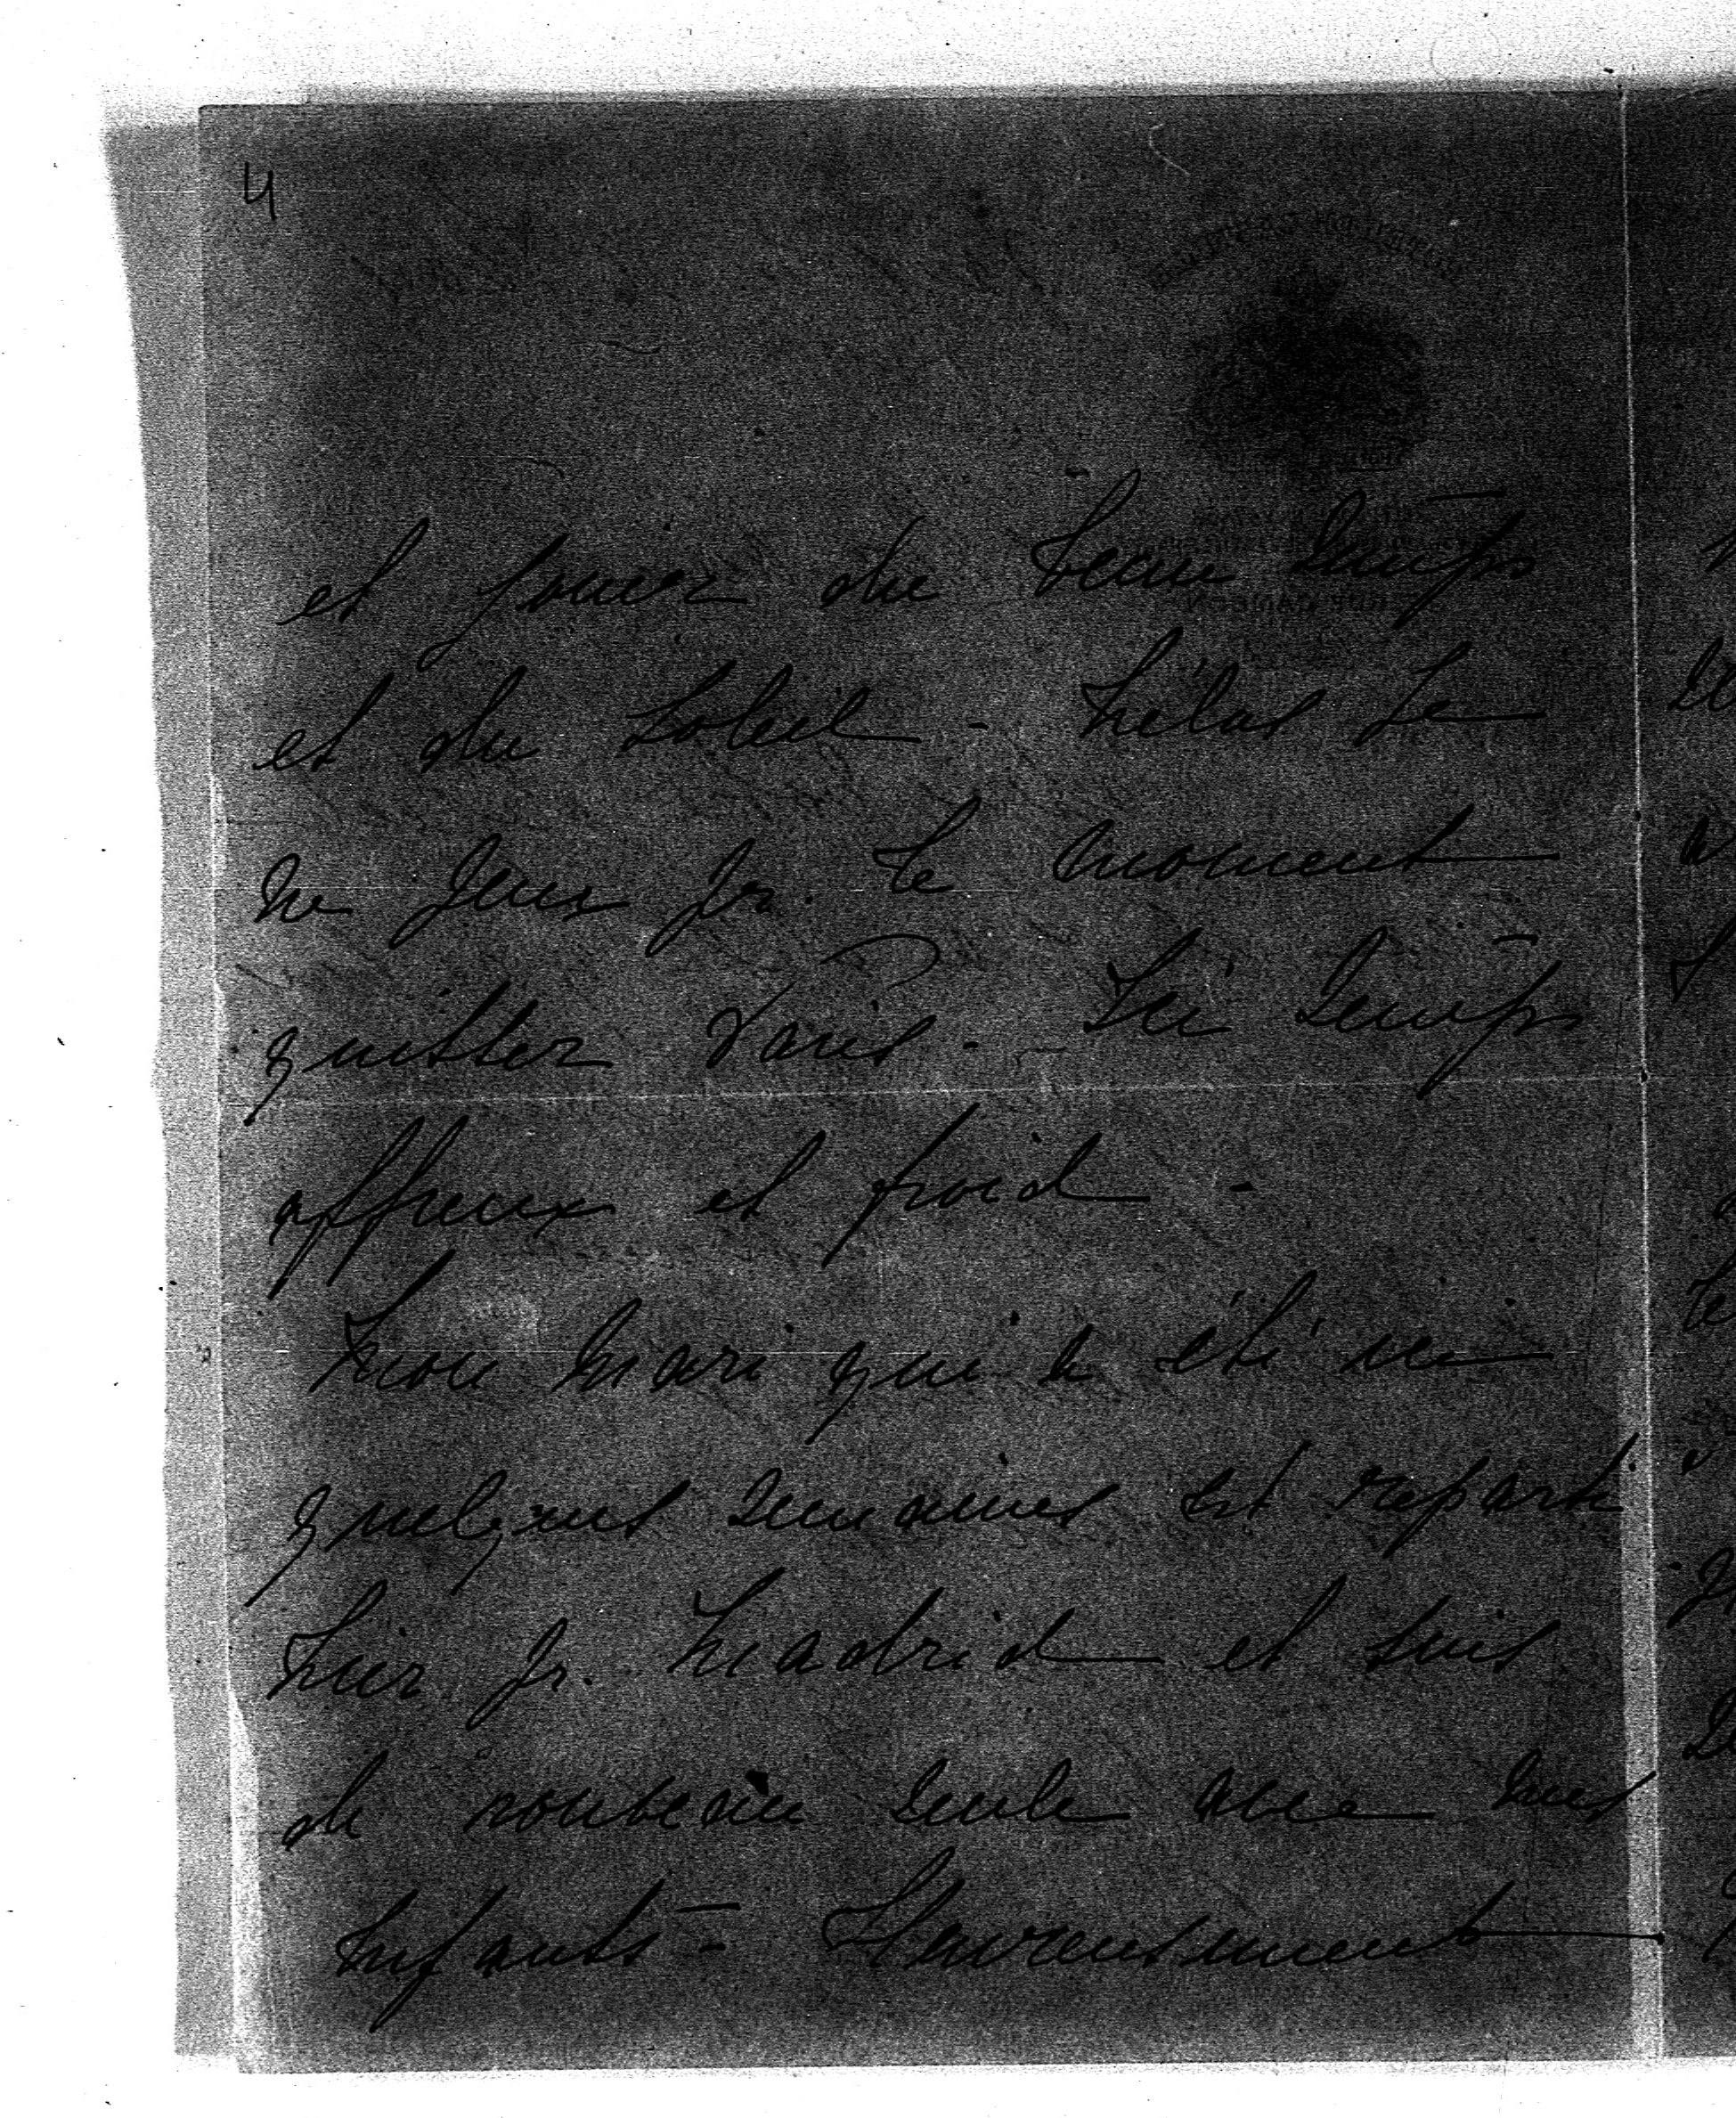 4
et jouir du beau temps
et du soleil - hélas je
ne peux pr. le moment
quitter Paris - Ici temps
affreux et froid -
Mon mari qui a été ici
quelques semaines est reparti
hier pr. Madrid et suis
de nouveau seule avec mes
enfants - Heureusement